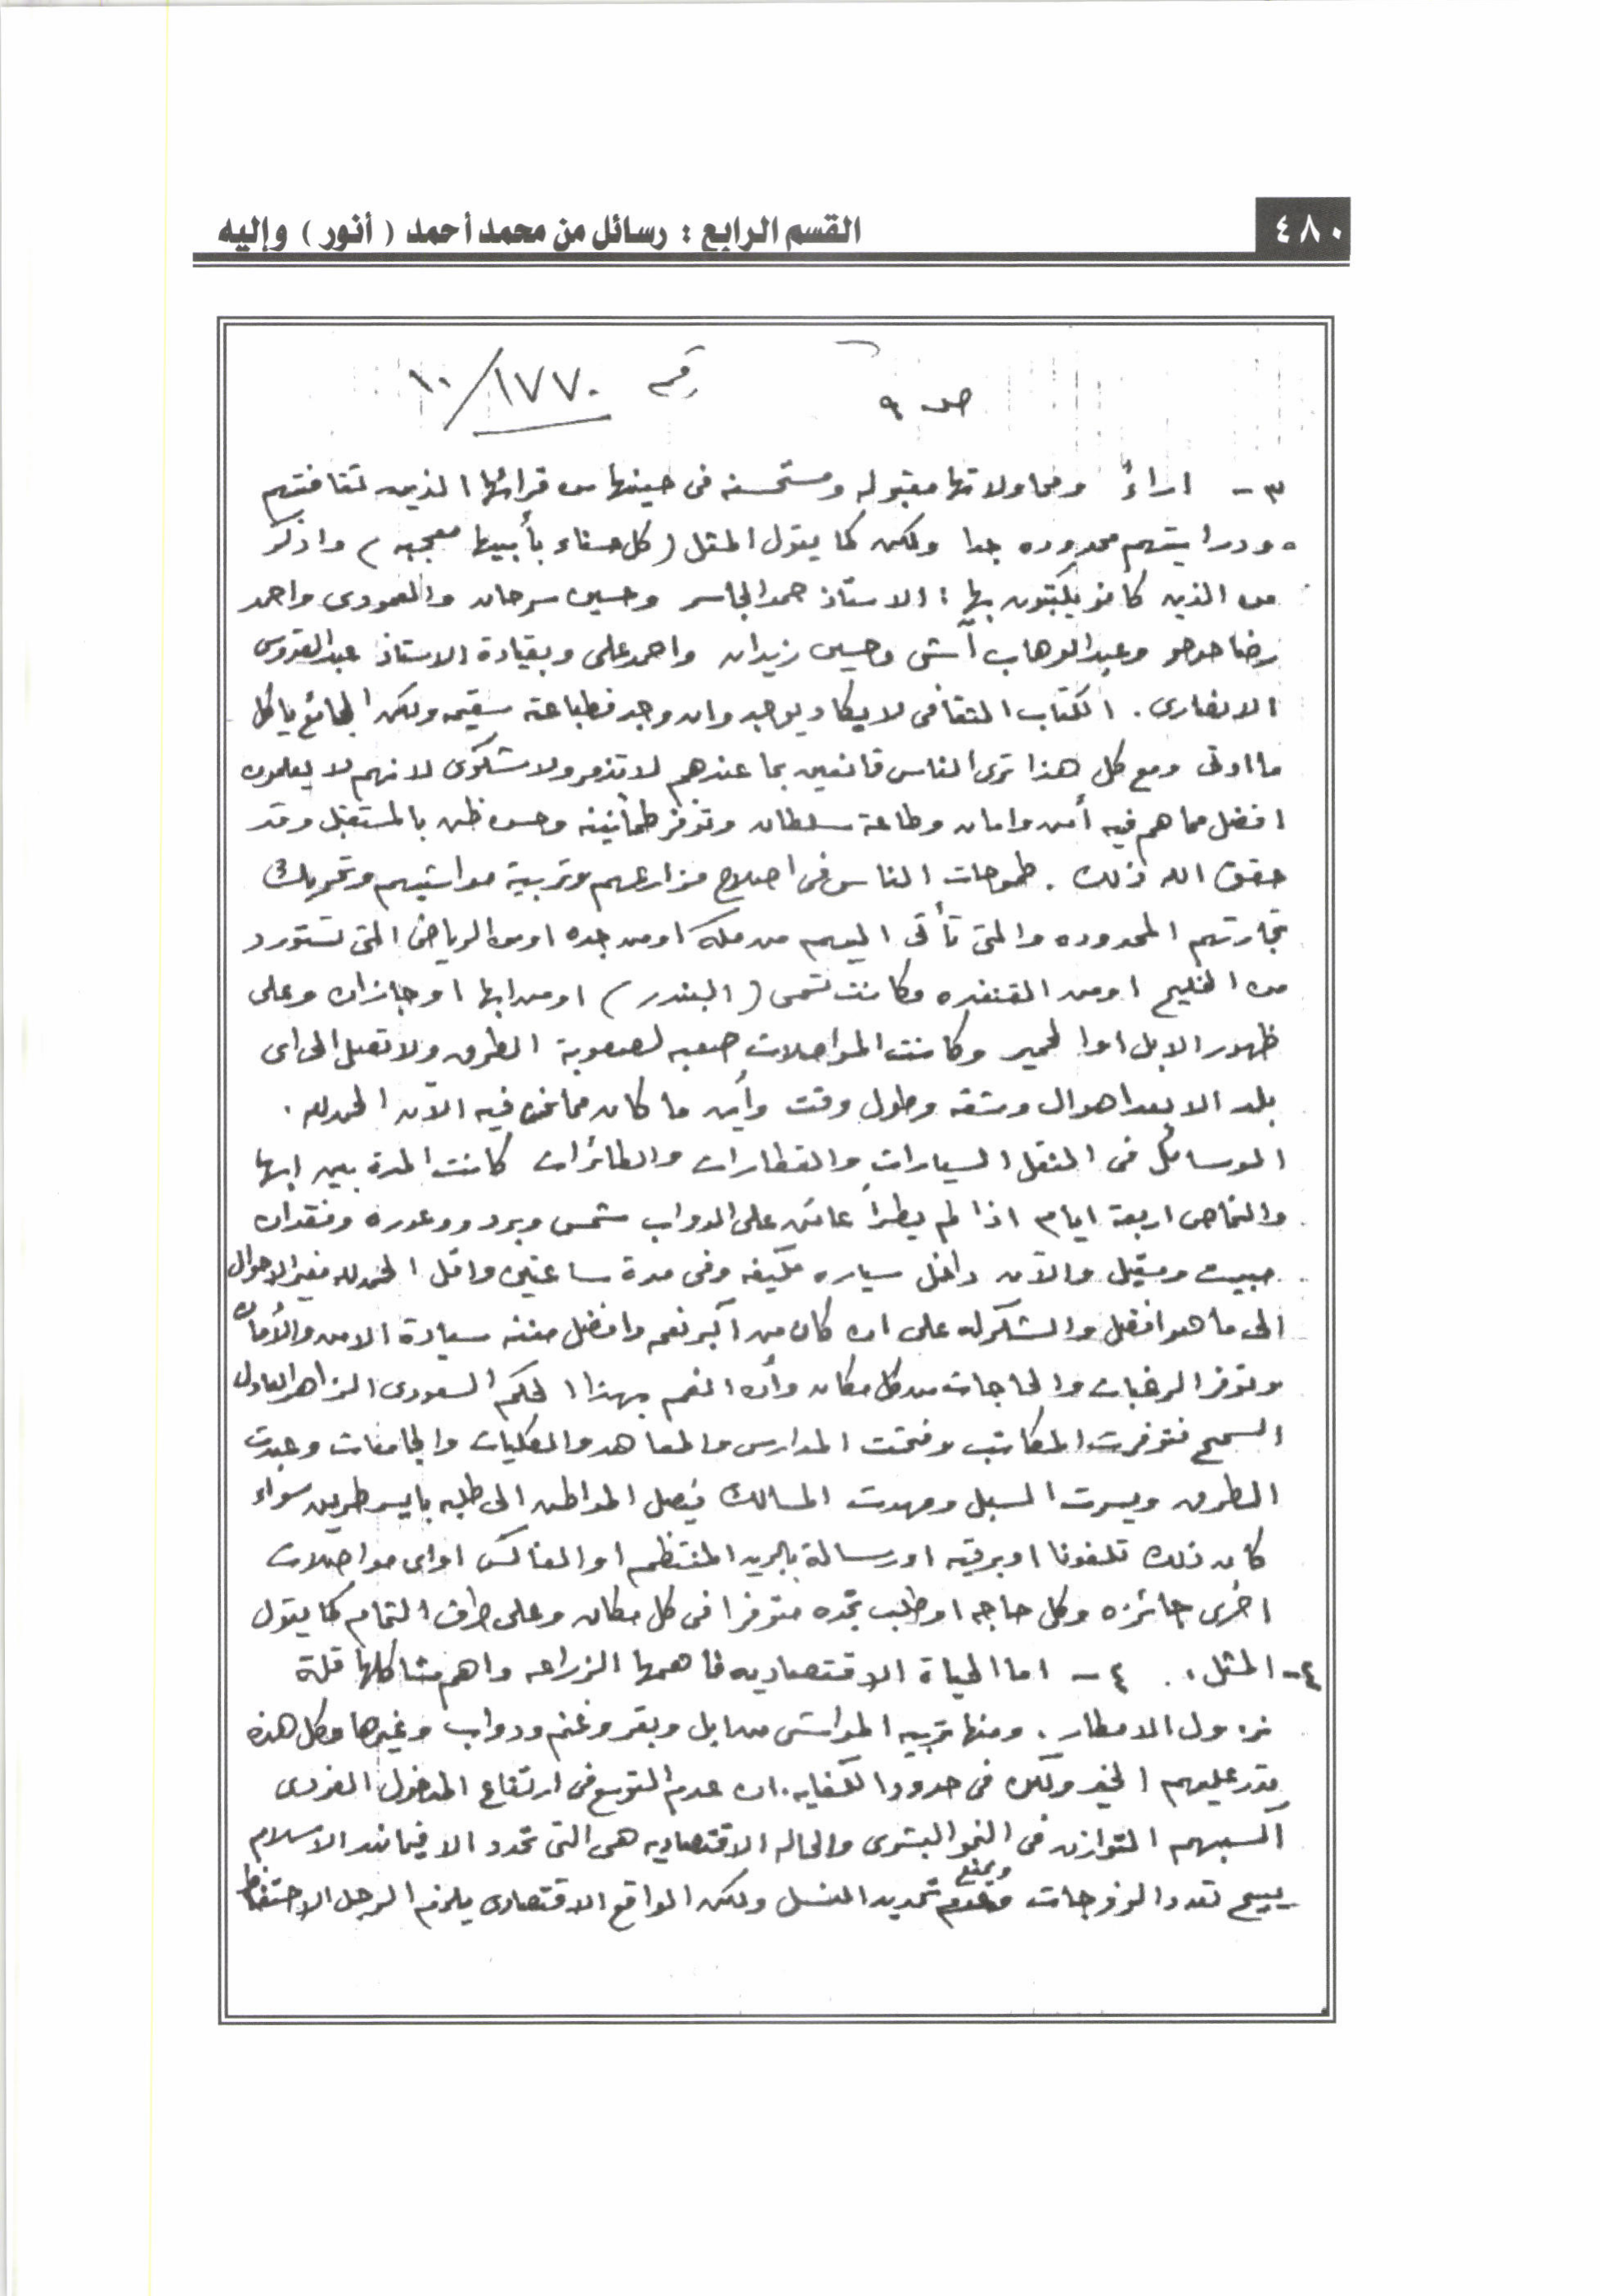 ٤٨٠
القسم الرابع : رسائل من محمد أحمد ( أنور ) وإليه
رقم ١٧٧٠/١٠
صـ ٩
٣- اراءُ ومحاولاتها مقبوله ومستحسنه فى حينها من قرائها الذين ثقافتهم
ودرايتهم محدوده جدا ولكن كما يقول المثل (كل حسناء بأبيها معجبه) واذكر
من الذين كانو يكتبون بها : الاستاذ حمد الجاسر وحسين سرحان والعمودى واحمد
رضا حوحو وعبد الوهاب آشى وحسين زيدان واحمد على وبقيادة الاستاذ عبد القدوس
الانصارى . الكتاب الثقافى لا يكاد يوجد وان وجد فطباعته سقيمه ولكن الجائع ياكل
ما اوتى ومع كل هذا ترى الناس قانعين بما عندهم لا تذمر ولا شكوى لانهم لا يعلمون
افضل مما هم فيه أمن وامان وطاعة سلطان وتوفر طمأنينه وحسن ظن بالمستقبل وقد
حقق الله ذلك . طموحات الناس فى اصلاح مزارعهم وتربية مواشيهم وتحريك
تجارتهم المحدوده والتى تأتى اليهم من مكه او من جده او من الرياض التى تستورد
من الخليج او من القنفذه وكانت تسمى (البندر) او من ابها او جازان وعلى
ظهور الابل او الحمير وكانت المواصلات صعبه لصعوبة الطرق ولا تصل الى اى
بلد الا بعد اهوال ومشقه وطول وقت وأين ما كان مما نحن فيه الآن الحمد لله .
الوسائل فى النقل السيارات والقطارات والطائرات كانت المدة بين ابها
والنماص اربعة ايام اذا لم يطرأ عائق على الدواب شمس وبرد ووعوره وفقدان
مبيت ومقيل والآن داخل سياره مكيفه وفى مدة ساعتين واقل الحمد لله مغير الاحوال
الى ما هو افضل والشكر له على ان كان من أكبر نعمه وافضل مننه سيادة الامن والأمان
وتوفر الرغبات والحاجات من كل مكان وأن انعم بهذا الحكم السعودى الزاهر العادل
السمح فتوفرت المكاتب وفتحت المدارس والمعاهد والكليات والجامعات وعبدت
الطرق ويسرت السبل ومهدت المسالك فيصل المواطن الى طلبه بايسر طريق سواء
كان ذلك تلفونا او برقيه او رسالة بالبريد المنتظم او الفاكس او اى مواصلات
اخرى جائزه وكل حاجه او طلب تجده متوفرا فى كل مكان وعلى طرف الثمام كما يقول
٤- المثل . ٤- اما الحياة الاقتصاديه فاهمها الزراعه واهم مشاكلها قلة
نزول الامطار . ومنها تربيه المواشى من ابل وبقر وغنم ودواب وغيرها وكل هذه
تدر عليهم الخير ولكن فى حدود الكفايه . ان عدم التوسع فى ارتفاع المدخول الفردى
اكسبهم التوازن فى النمو البشرى والحاله الاقتصاديه هى التى تحدد الا فيما ندر الاسلام
يبيح تعدد الزوجات ويمنع تحديد النسل ولكن الواقع الاقتصادى يلزم الرجل الاحتفاظ